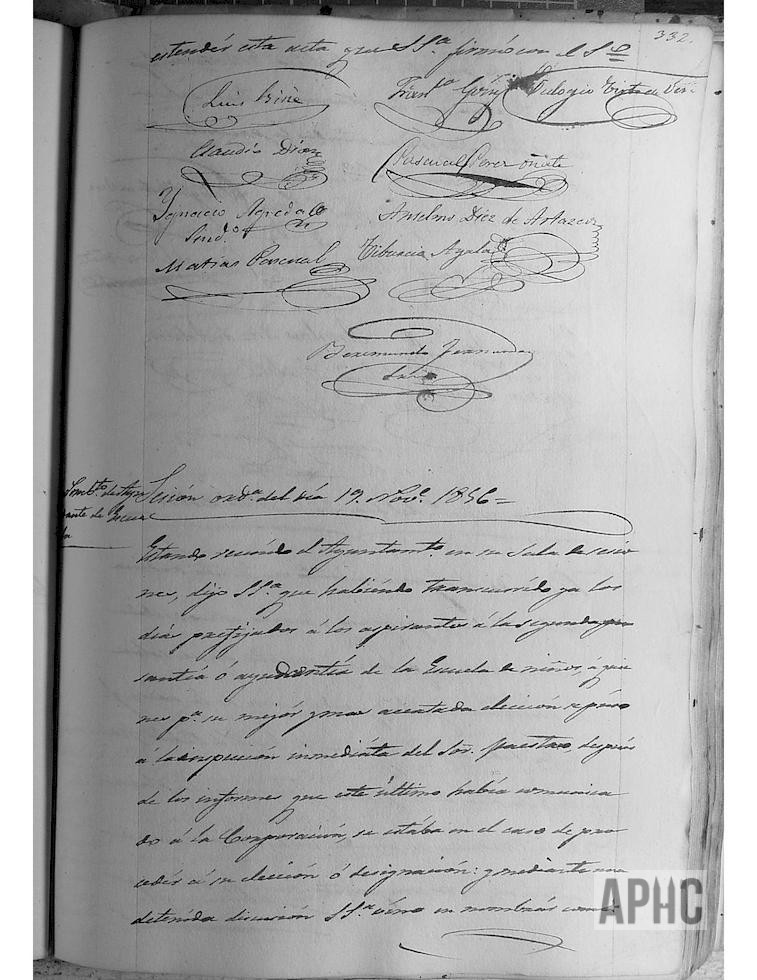 332.
estendér esta acta que SSª. firmó con el Sº
Luis Briñe
Franᶜᵒ Goñi Eulogio
Claudio Diez
Pascual Perez Oñate
Ygnacio Agreda
Anselmo Diez de Artazcoz
Sind.º
Matias Pascual
Tiburcio Ayala
Beremundo Fernandez
Srio
Nombtº. de Ayu
dante de Escue
la
Sesión ordª. del día 19. Novᵉ. 1856=
Estando reunido el Ayuntamtº. en su Sala de sesio
nes, dijo SSª. que habiéndo transcurrido ya los
días prefijados á los aspirantes á la segunda pa
santía ó ayudantía de la Escuela de niños, á quie
nes pª. su mejór y mas acertada elección se puso
á la inspección inmediáta del Sor. Maestro, después
de los informes que este último había comunica
do á la Corporación, se estába en el caso de pro
cedér á su elección ó designación: y mediante una
detenida discusión SSª. víno en nombrár como
APHC